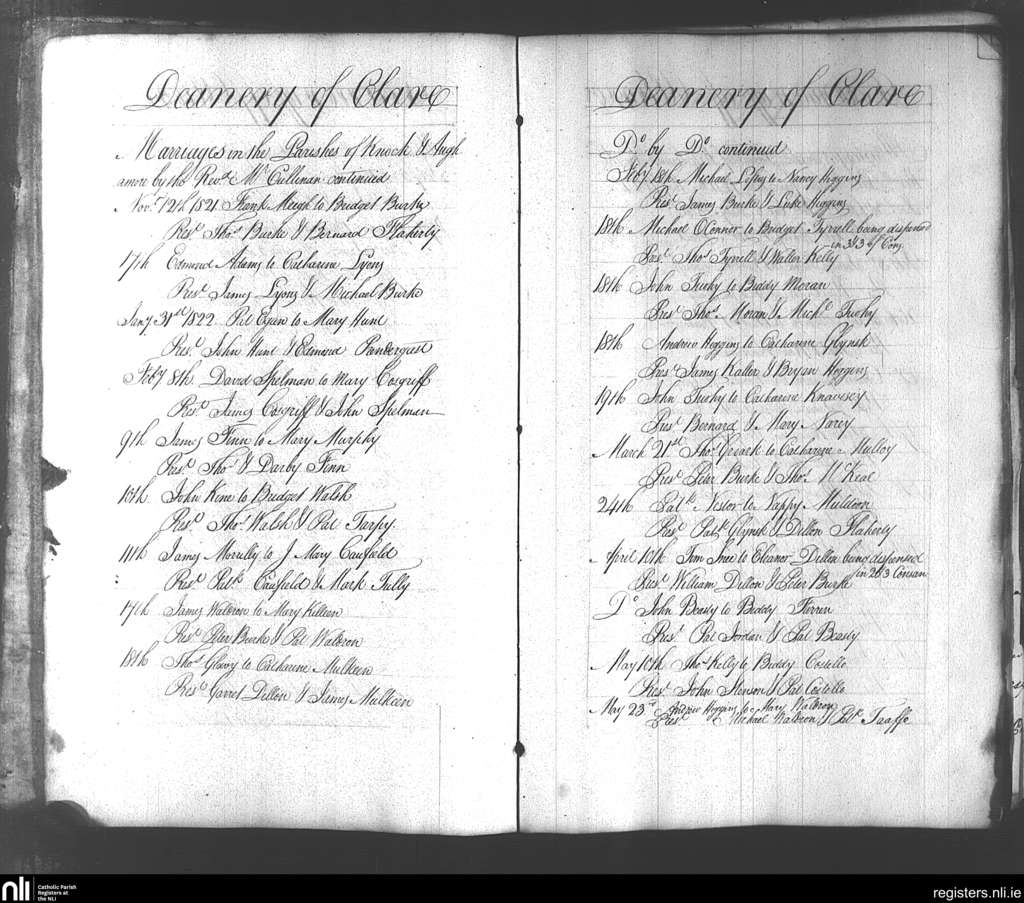 Deanery of Clare
Marriages in the Parishes of Knock & Augh
amore by the Revd. Mr. Cullinan continued
Novr. 12th 1821 Frank Meigh to Bridget Burke
Rest. Thos. Burke & Bernard Flaherty
17th Edmond Adams to Catharine Lyons
Rest. James Lyons & Michael Burke
Jany 31st 1822 Pat Egan to Mary Hunt
Rest. John Hunt & Edmond Pandergast
Feby 8th David Spelman to Mary Cosgriff
Rest. James Cosgriff & John Spelman
9th James Finn to Mary Murphy
Rest. Thos. & Darby Finn
10th John Kene to Bridget Walsh
Rest. Thos. Walsh & Pat Tarpy.
11th James Morrilly to J Mary Caufield
Rest. Patk. Caufield & Mark Tully
17th James Waldron to Mary Killeen
Rest. Peter Burke & Pat Waldron
18th Thos. Glavy to Catharine Mulkeen
Rest. Garret Dillon & James Mulkeen
Deanery of Clare
Do. by Do. continued
Feby 18th Michael to Nancy Higgins
Rest. James Burke & Luke Higgins
18th Michael OConnor to Bridget Tyrrell being dispensed
in 3d & 3 of Con.
Rest. Thos. Tyrrell & Walter Kelly
18th John Tuohy to Biddy Moran
Rest. Thos. Moran & Michl. Tuohy
18th Andrew Higgins to Catharine Glynsk
Rest. James & Bryan Higgins
19th John to Catharine
Rest. Bernard & Mary Narey
March 21st Thos. to Catharine Mulloy
Rest. Peter Burke & Thos. McKeal
24th Patk. Nestor to Nappy Muldoon
Rest. Patk. Glynsk & Dillon Flaherty
April 10th to Eleanor Dillon being dispensed
in 2 & 3 Consan
Rest. William Dillon & Peter Burke
Do. John Beasly to Biddy
Rest. Pat Jordan & Pat Beasly
May 10th Thos. Kelly to Biddy Costello
Rest. John & Pat Costello
May 23rd Andrew Higgins to Mary Waldron
Rest. Michael Waldron & Patk. Taaffe
nli
Catholic Parish
Registers at
the NLI
registers.nli.ie